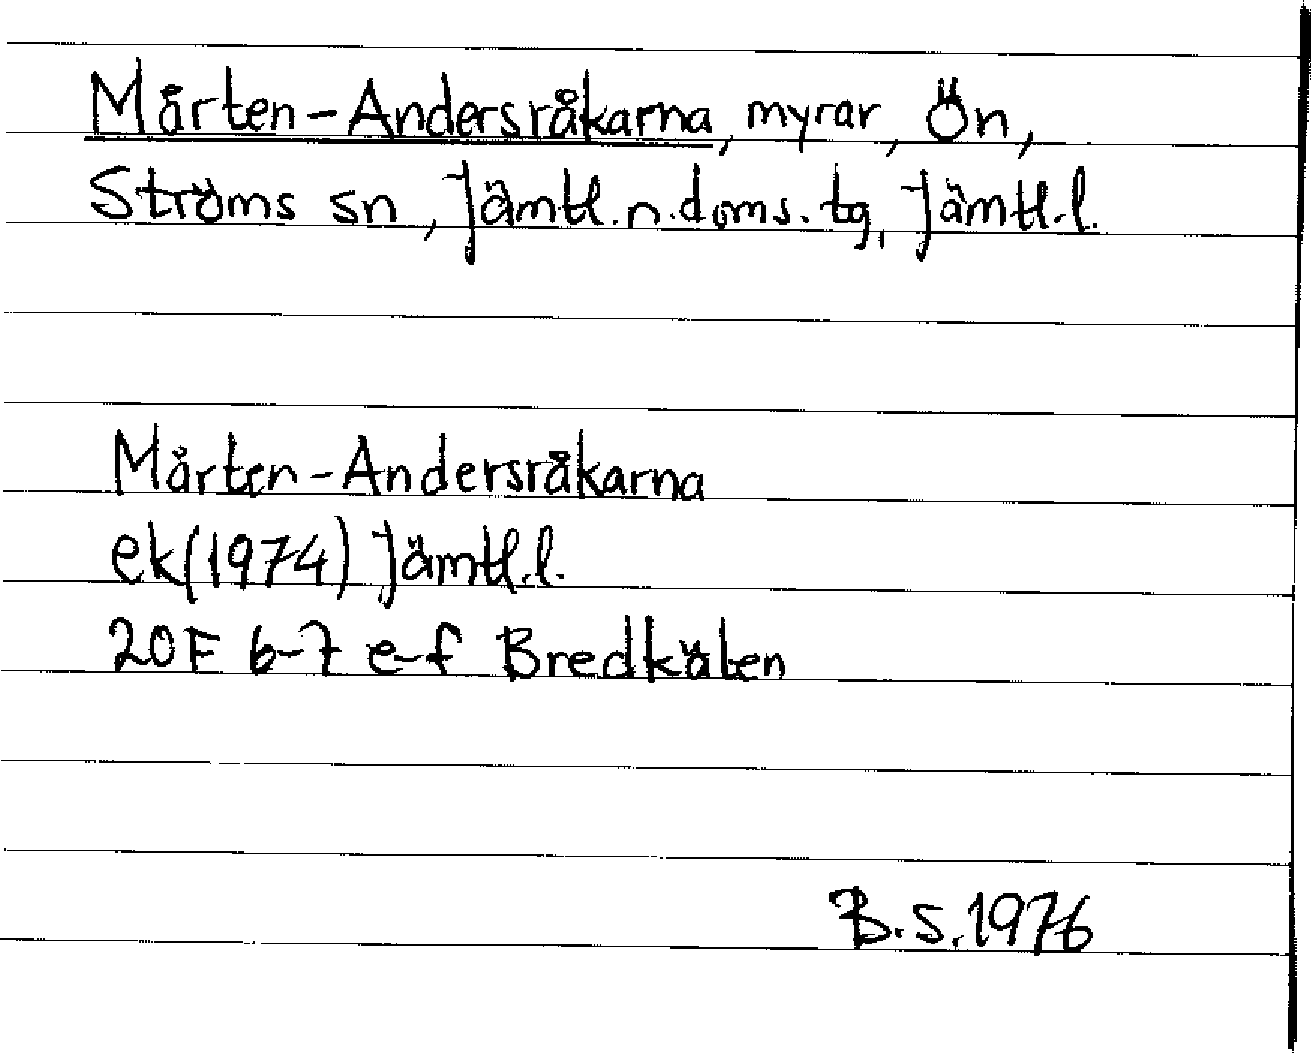 Mårten-Andersråkarna, myrar, Ön,
Ströms sn, Jämtl.n.doms.tg, Jämtl.l.
Mårten-Andersråkarna
ek(1974) Jämtl.l.
20F 6-7 e-f Bredkälen
B.S.1976